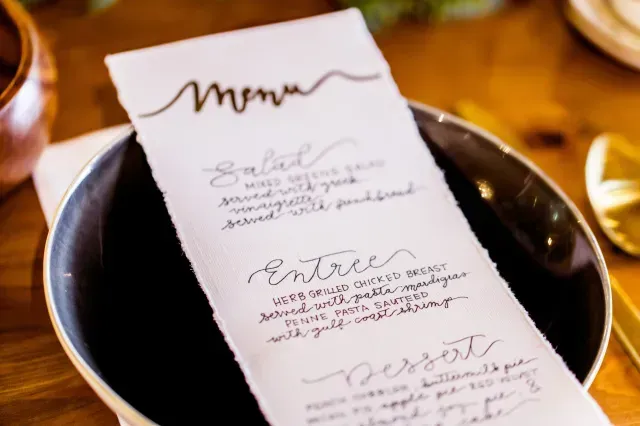 Menu
Salad
MIXED GREENS SALAD
served with greek
vinaigrette
served with frenchbread
Entree
HERB GRILLED CHICKED BREAST
served with pasta mardigras
PENNE PASTA SAUTEED
with gulf coast shrimp
Dessert
PEACH COBBLER, buttermilk pie
PIE apple pie RED VELVET
joy pie, &
cake